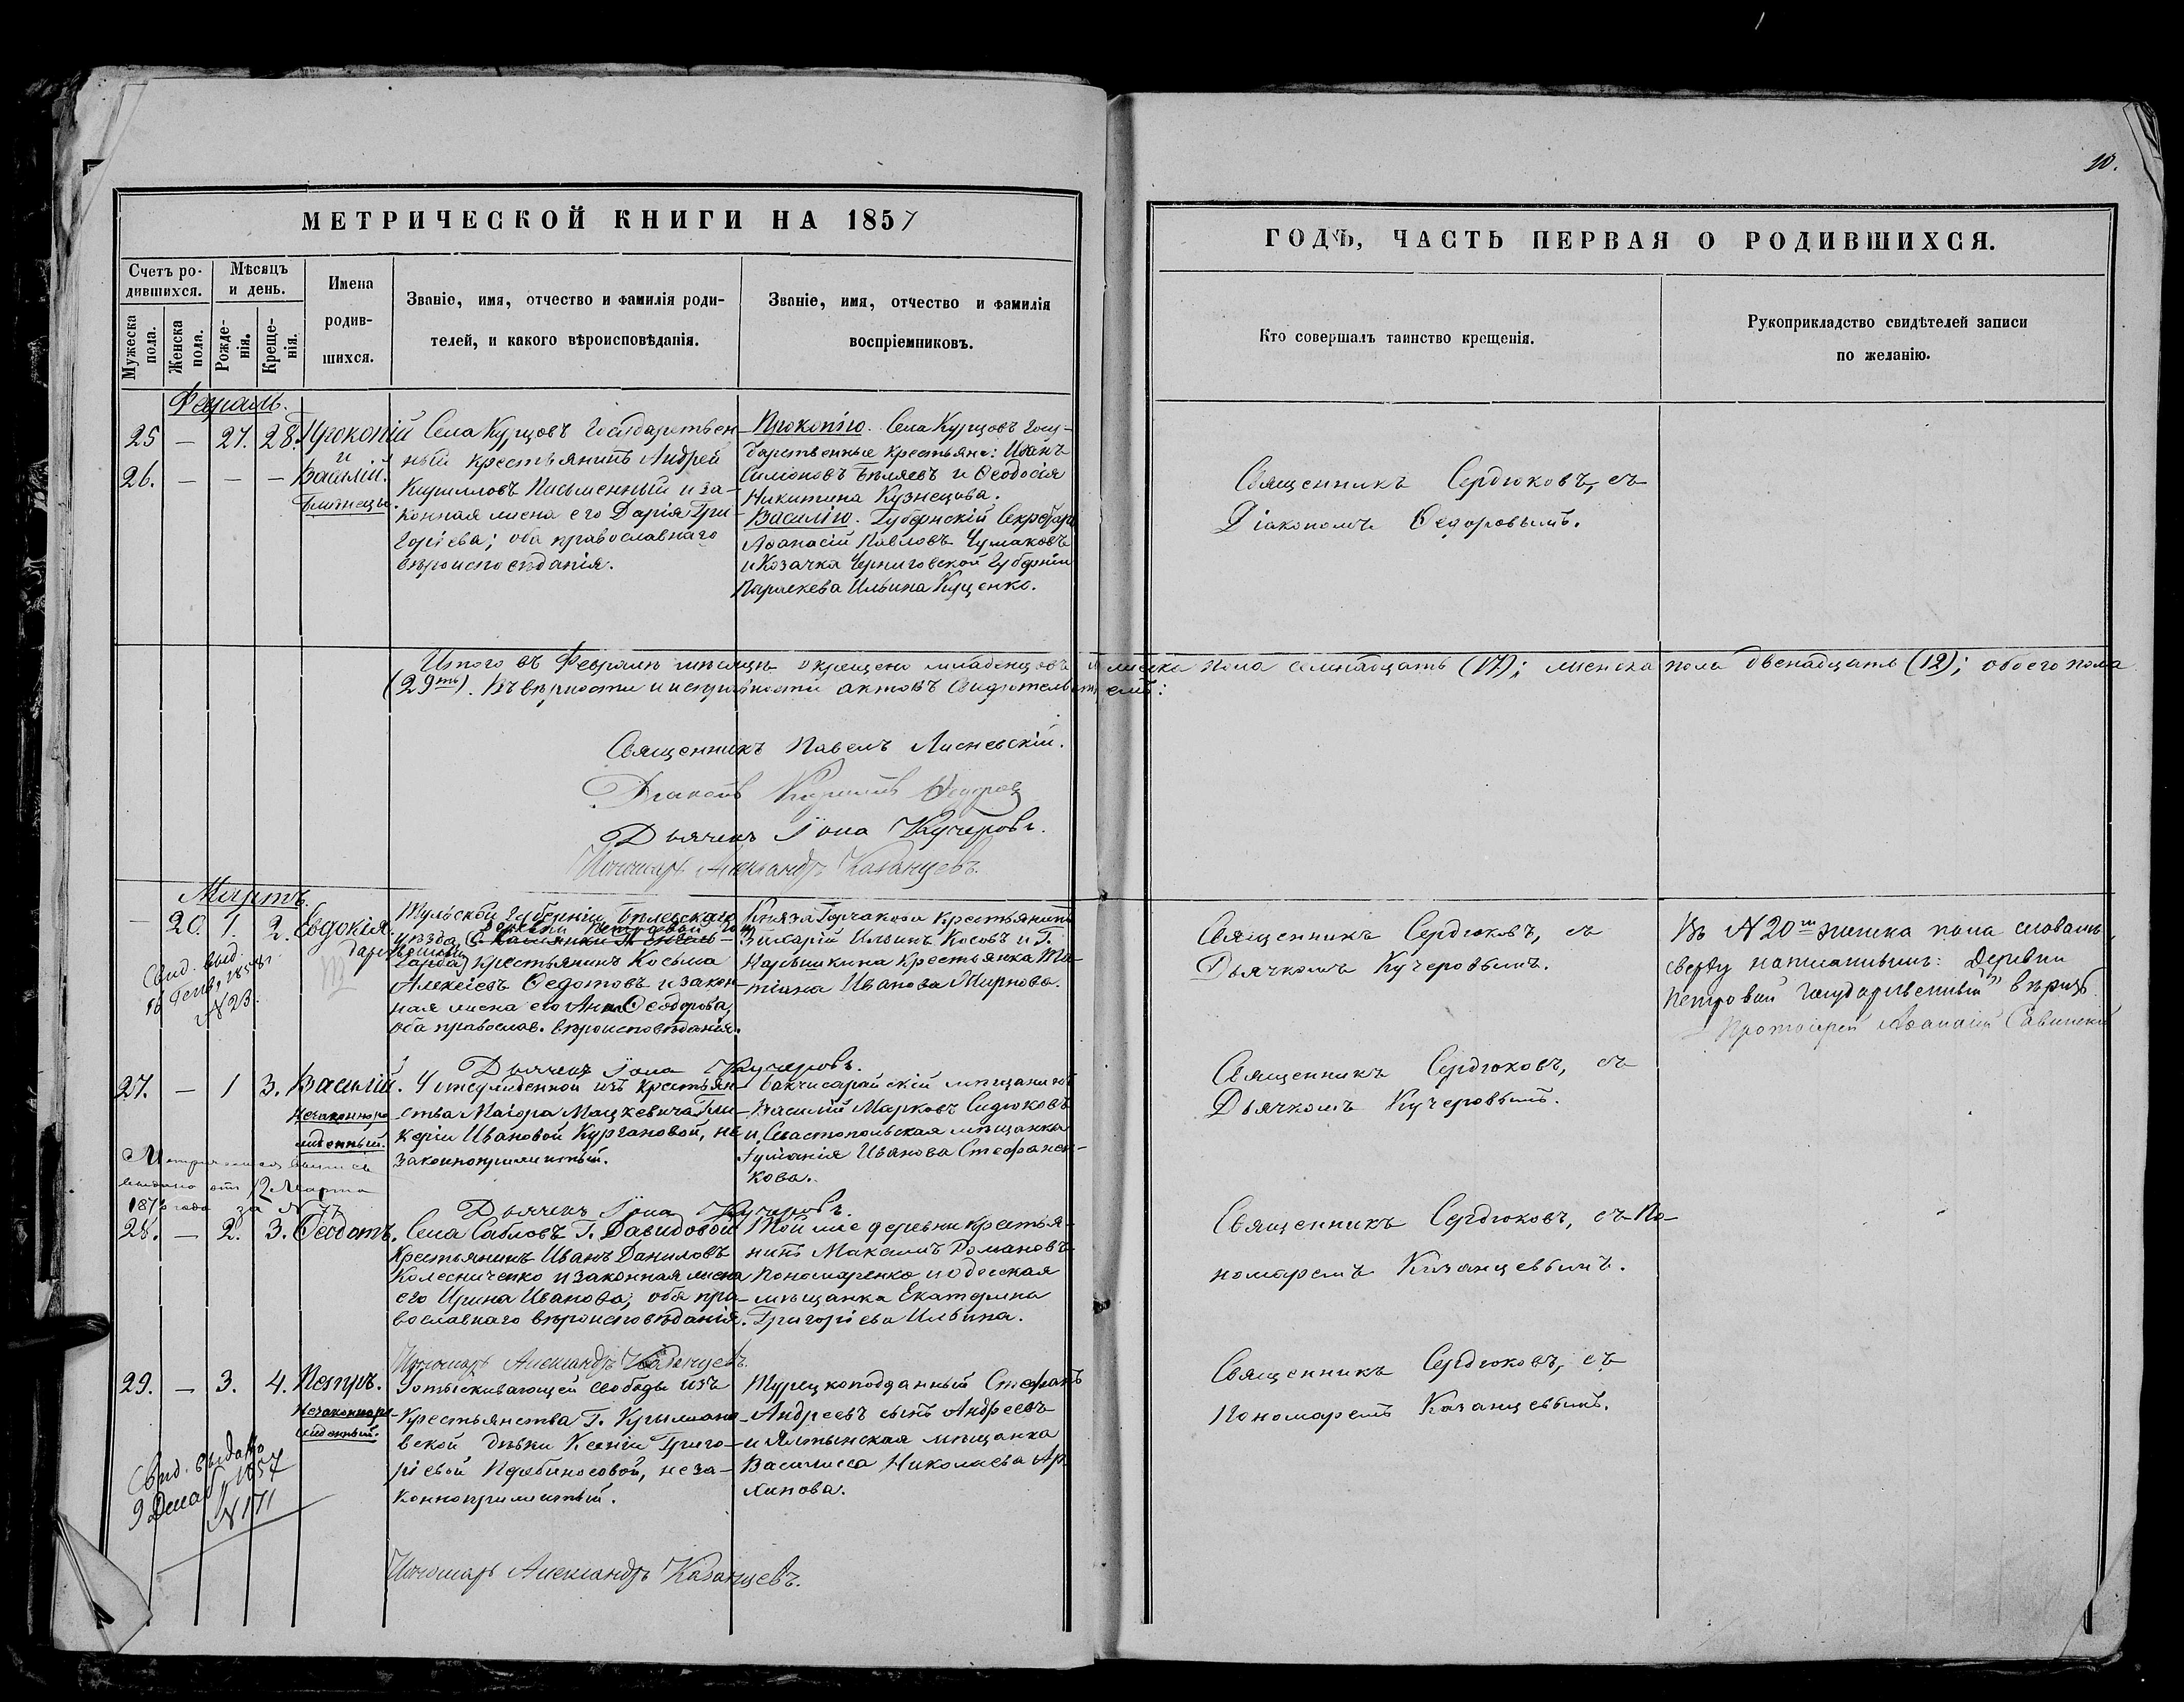 10.
МЕТРИЧЕСКОЙ КНИГИ НА 1857
Счетъ ро-
дившихся.
Мѣсяцъ
и день.
Мужеска
пола.
Женска
пола.
Рожде-
нія.
Креще-
нія.
Имена
родив-
шихся.
Званіе, имя, отчество и фамилія роди-
телей, и какого вѣроисповѣданія.
Званіе, имя, отчество и фамилія
воспріемниковъ.
ГОДЪ, ЧАСТЬ ПЕРВАЯ О РОДИВШИХСЯ.
Кто совершалъ таинство крещенія.
Рукоприкладство свидѣтелей записи
по желанію.
Февраль.
25 — 27. 28. Прокопій
и
26. — — — Василій.
близнецы.
Села Курцовъ Государствен-
ный крестьянинъ Андрей
Кирилловъ Письменный и за-
конная жена его Дарія Гри-
горіева; оба православнаго
вѣроисповѣданія.
Прокопію. Села Курцовъ Госу-
дарственные крестьяне: Иванъ
Симоновъ Бѣляевъ и Ѳеодосія
Никитина Кузнецова.
Василію. Губернскій Секретарь
Аѳанасій Павловъ Чумаковъ
и Козачка Черниговской Губерніи
Параскева Ильина Куценко.
Священникъ Сердюковъ, съ
Діакономъ Ѳедоровымъ.
Итого въ Февралѣ мѣсяцѣ окрещено младенцовъ мужеска пола семнадцать (17); женска пола двенадцать (12); обоего пола
(29ть). Въ вѣрности и исправности актовъ свидѣтельствуемъ:
Священникъ Павелъ Лисневскій.
Діаконъ Кириллъ Ѳедоровъ
Дьячекъ Іона Кучеровъ.
Пономарь Александръ Казанцевъ.
Мартъ.
— 20. 1. 2. Евдокія.
Свид. выд.
16 Генв. 1858 г.
№ 23.
Тульской Губерніи Бѣлевскаго
уѣзда, деревни Петровой Госу-
дарственный
крестьянинъ Косьма
Алексіевъ Ѳедотовъ и закон-
ная жена его Анна Ѳеодорова,
оба православ. вѣроисповѣданія.
Князя Горчакова крестьянинъ
Иларій Ильинъ Косовъ и Г.
Нарышкина крестьянка Та-
тіана Иванова Жирнова.
Священникъ Сердюковъ, съ
Дьячкомъ Кучеровымъ.
Въ № 20м женска пола словамъ
сверху написаннымъ: деревни
Петровой Государственный вѣрить
Протоіерей Аѳанасій Савинскій
Дьячекъ Іона Кучеровъ.
27. — 1 3. Василій.
Незаконноро
жденный.
Метрическая выпись
выдана отъ 12 Марта
за № 77
крестьян-
ства Маіора Мацкевича Гли-
керіи Ивановой Кургановой, не-
законноприжитый.
Бакчисарайскій мѣщанинъ
Василій Марковъ Сидюковъ
и Севастопольская мѣщанка
Іуліанія Иванова Стефанен-
кова.
Священникъ Сердюковъ, съ
Дьячкомъ Кучеровымъ.
Дьячекъ Іона Кучеровъ.
28. — 2. 3. Ѳеодотъ.
Села Сабловъ Г. Давидовой
крестьянинъ Иванъ Даниловъ
Колесниченко и законная жена
его Ирина Иванова; оба пра-
вославнаго вѣроисповѣданія.
Той же деревни крестья-
нинъ Максимъ Романовъ
Пономаренко и одесская
мѣщанка Екатерина
Григоріева Ильина.
Священникъ Сердюковъ, съ По-
номаремъ Казанцевымъ.
Пономарь Александръ Казанцевъ.
29. — 3. 4. Петръ.
Незаконноро-
жденный.
Свид. выдано
9 Декаб. 1857
№ 171
Отыскивающей свободы изъ
крестьянства Г. Крымтаев-
ской дѣвки Ксеніи Григо-
ріевой Перебиносовой, неза-
конноприжитый.
Турецкоподданный Стефанъ
Андреевъ сынъ Андреевъ
и Ялтынская мѣщанка
Василисса Николаева Ар-
хипова.
Священникъ Сердюковъ, съ
Пономаремъ Казанцевымъ.
Пономарь Александръ Казанцевъ.